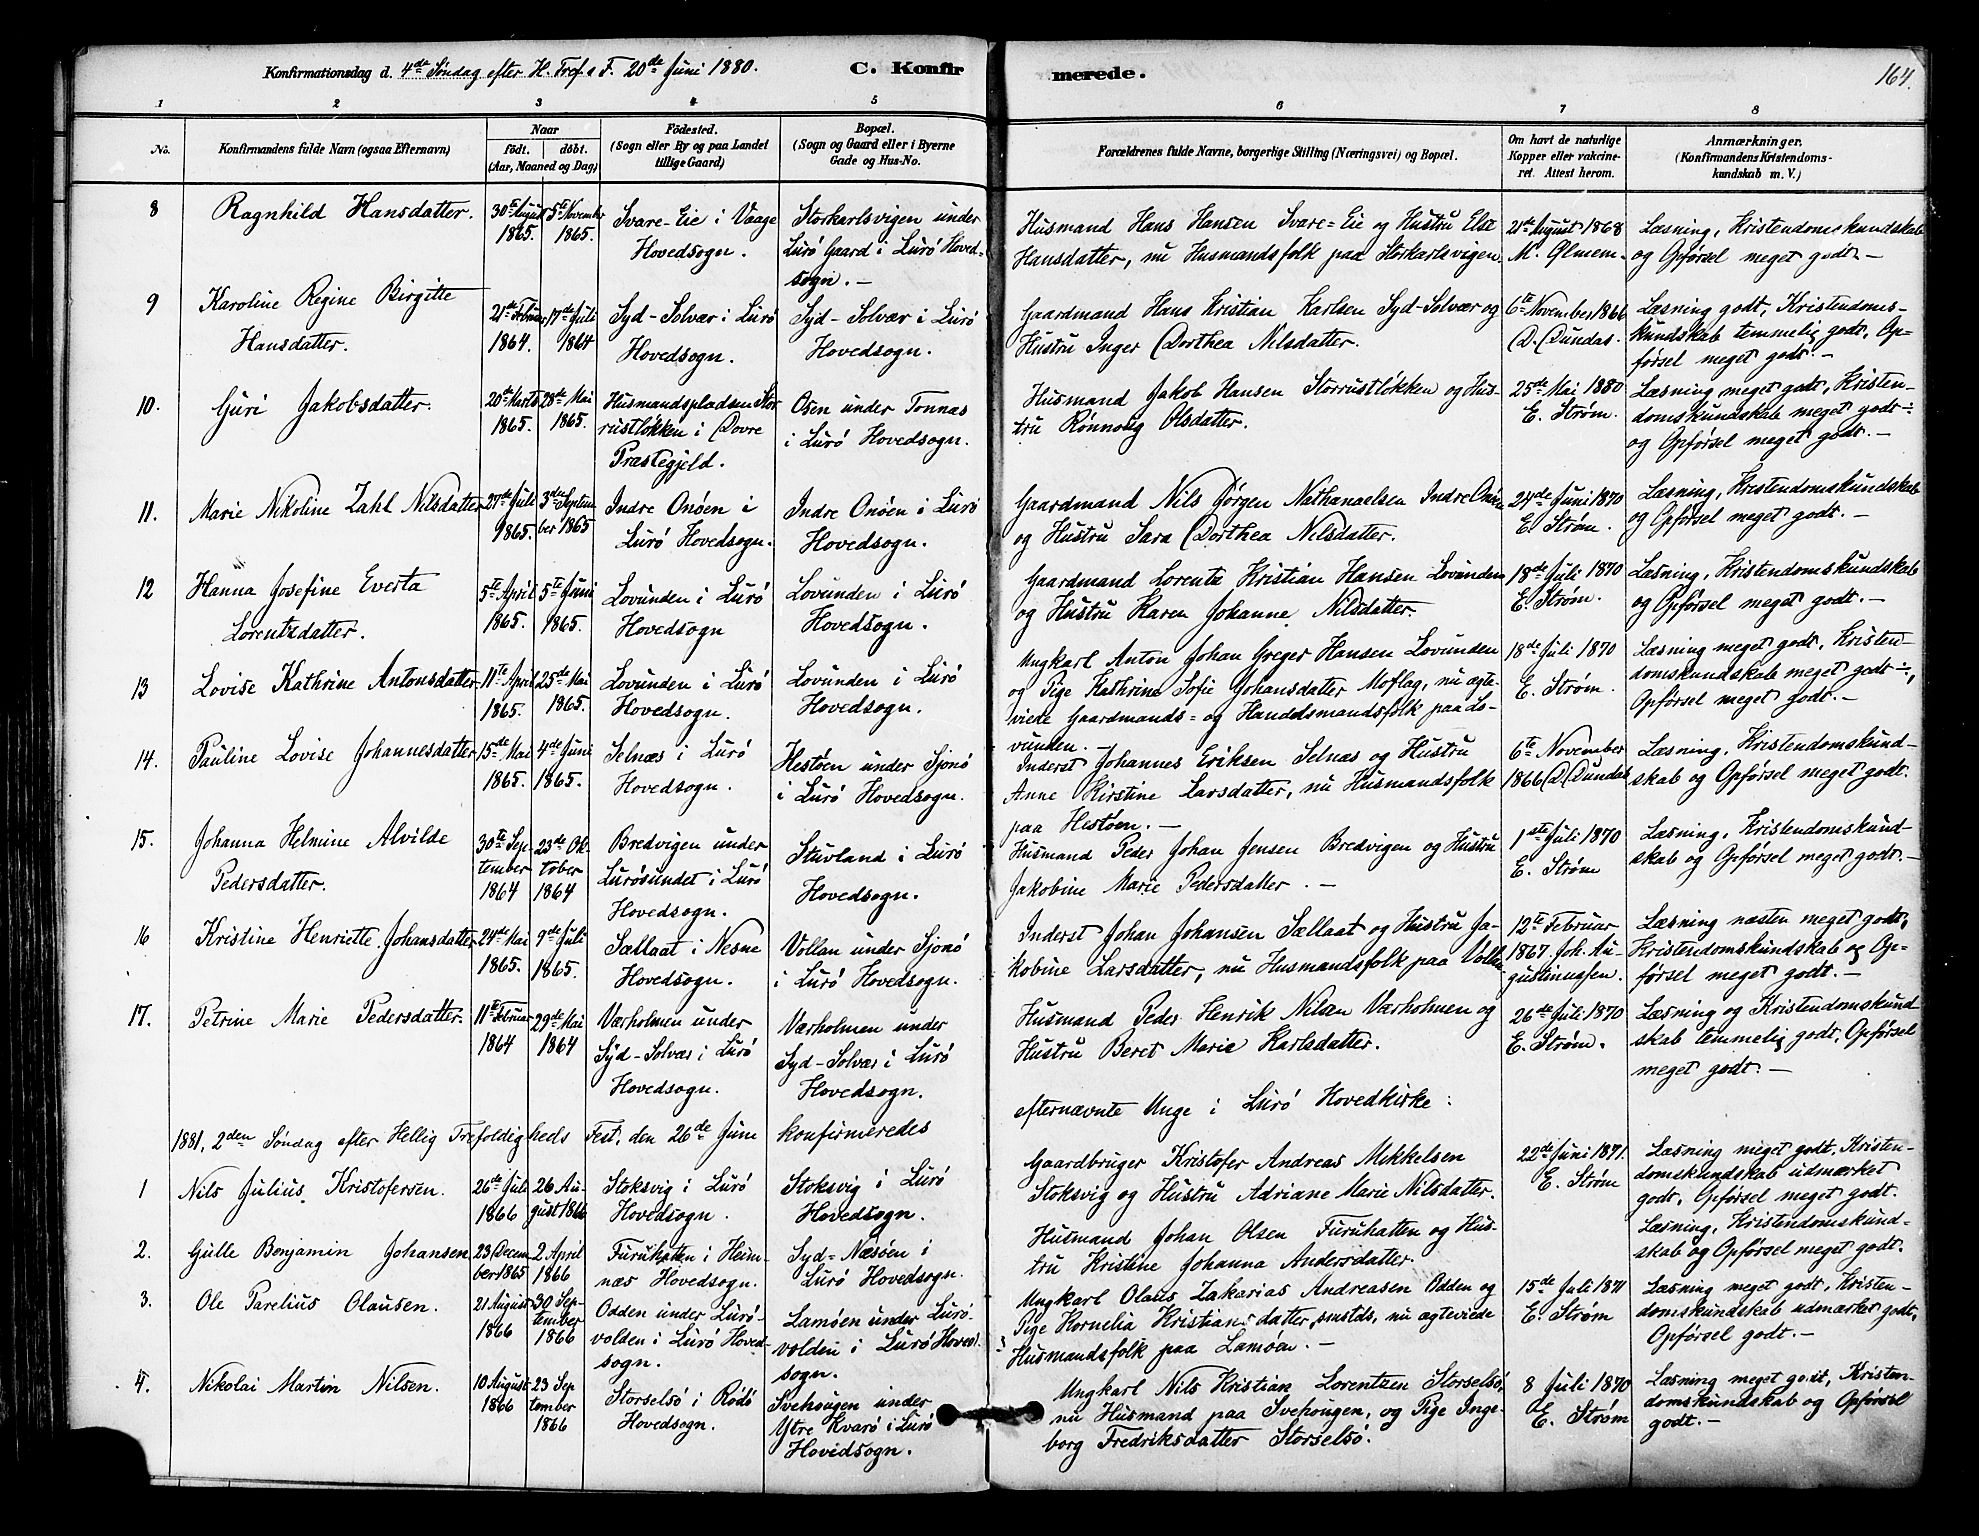 Konfirmationsdag d. 4de Søndag efter H. Tref. s F. 20de Juni 1880. C. Konfirmerede. 164.
1 2 3 4 5 6 7 8
No.
Konfirmandens fulde Navn (ogsaa Efternavn)
Naar
födt. döbt.
(Aar, Maaned og Dag)
Födested.
(Sogn eller By og paa Landet
tillige Gaard)
Bopæl.
(Sogn og Gaard eller i Byerne
Gade og Hus-No.
Forældrenes fulde Navne, borgerlige Stilling (Næringsvei) og Bopæl.
Om havt de naturlige
Kopper eller vakcine-
ret. Attest herom.
Anmærkninger.
(Konfirmandens Kristendoms-
kundskab m. V.)
8
Ragnhild Hansdatter.
30te August
1865.
5te November
1865.
Svare-Eie i Vaage
Hovedsogn.
Storkarlsvigen under
Lurö Gaard i Lurö Hoved=
sogn. -
Husmand Hans Hansen Svare=Eie og Hustru Else
Hansdatter, nu Husmandsfolk paa Storkarlsvigen.
21de August 1868
Læsning, Kristendomskundskab
og Opførsel meget godt. -
9
Karoline Regine Birgitte
Hansdatter.
21de Februar
1864.
17de Juli
1864
Syd-Solvær i Lurö
Hovedsogn.
Syd-Solvær i Lurö
Hovedsogn.
Gaardmand Hans Kristian Karlsen Syd-Solvær og
Hustru Inger Dorthea Nilsdatter.
6te November 1866
D. Dundas.
Læsning godt, Kristendoms-
kundskab temmelig godt, Op-
førsel meget godt. -
10.
Guri Jakobsdatter.
20de Marts
1865.
28de Mai
1865.
Husmandspladsen Stor
rustløkken i Dovre
Præstegjeld.
Osen under Tonnas
i Lurö Hovedsogn.
Husmand Jakob Hansen Storrustløkken og Hus-
tru Rønnoug Olsdatter.
25de Mai 1880
E. Strøm.
Læsning meget godt, Kristen-
domskundskab meget godt÷
og Opførsel meget godt. -
11.
Marie Nikoline Zahl Nilsdatter
27de Juli
1865.
3de Septem
ber 1865
Indre Onøen i
Lurö Hovedsogn.
Indre Onøen i Lurö
Hovedsogn.
Gaardmand Nils Jørgen Nathanaelsen Indre Onøen
og Hustru Sara Dorthea Nilsdatter.
24de Juni 1870
E. Strøm.
Læsning, Kristendomskundskab
og Opførsel meget godt. -
12
Hanna Josefine Everta
Lorentzdatter.
5te April
1865.
5te Juni
1865.
Lovunden i Lurö
Hovedsogn
Lovunden i Lurö
Hovedsogn.
Gaardmand Lorentz Kristian Hansen Lovunden
og Hustru Karen Johanne Nilsdatter.
18de Juli 1870
E. Strøm.
Læsning, Kristendomskundskab
og Opførsel meget godt. -
13
Lovise Kathrine Antonsdatter
11te April
1865.
25de Mai
1865.
Lovunden i Lurö
Hovedsogn.
Lovunden i Lurö
Hovedsogn.
Ungkarl Anton Johan Greger Hansen Lovunden
og Pige Kathrine Sofie Johansdatter Moflag, nu ægte-
viede Gaardmands= og Handelsmandsfolk paa Lo-
vunden. -
18de Juli 1870
E. Strøm.
Læsning meget godt, Kristen-
domskundskab meget godt÷,
Opførsel meget godt. -
14.
Pauline Lovise Johannesdatter
15de Mai
1865.
4de Juni
1865.
Selnæs i Lurö
Hovedsogn.
Hestøen under Sjonö
i Lurö Hovedsogn.
Inderst Johannes Eriksen Selnæs og Hustru
Anne Kirstine Larsdatter, nu Husmandsfolk
paa Hestøen. -
6te November
1866 D. Dundas
Læsning, Kristendomskund-
skab og Opførsel meget godt.
15.
Johanna Helmine Alvilde
Pedersdatter.
30te Sep-
tember
1864
23de Ok
tober
1864
Bredvigen under
Lurösundet i Lurö
Hovedsogn.
Stuvland i Lurö
Hovedsogn.
Husmand Peder Johan Jensen Bredvigen og Hustru
Jakobine Marie Pedersdatter. -
1ste Juli 1870
E. Strøm
Læsning, Kristendomskund-
skab og Opførsel meget godt. -
16
Kristine Henriette Johansdatter
24de Mai
1865.
9de Juli
1865.
Sællaat i Nesne
Hovedsogn.
Vollan under Sjonö
i Lurö Hovedsogn.
Inderst Johan Johansen Sællaat og Hustru Ja-
kobine Larsdatter, nu Husmandsfolk paa Vollan
12te Februar
1867. Joh. Au-
gustinussen.
Læsning næsten meget godt,
Kristendomskundskab og Op-
førsel meget godt. -
17.
Petrine Marie Pedersdatter.
11te Februar
1864
29de Mai
1864
Værholmen under
Syd-Solvær i Lurö
Hovedsogn.
Værholmen under
Syd-Solvær i Lurö
Hovedsogn.
Husmand Peder Henrik Nilsen Værholmen og
Hustru Beret Marie Karlsdatter.
26de Juli 1870
E. Strøm.
Læsning og Kristendomskund
skab temmelig godt, Opførsel
meget godt. -
1881, 2den Søndag efter Hellig Trefoldigheds Fest, den 26de Juni konfirmeredes efternævnte Unge i Lurö Hovedkirke:
1
Nils Julius Kristofersen.
26de Juli
1866
26 Au-
gust 1866
Stoksvig i Lurö
Hovedsogn.
Stoksvig i Lurö
Hovedsogn.
Gaardbruger Kristofer Andreas Mikkelsen
Stoksvig og Hustru Adriane Marie Nilsdatter.
22de Juni 1871.
E. Strøm
Læsning meget godt, Kristen-
domskundskab udmærket
godt, Opførsel meget godt.
2.
Gulle Benjamin Johansen
23 Decem
ber 1865
2 April
1866
Furuhatten i Hem-
næs Hovedsogn.
Syd=Næsöen i
Lurö Hovedsogn.
Husmand Johan Olsen Furuhatten og Hus-
tru Kristine Johanna Andersdatter.
Læsning, Kristendomskund-
skab og Opførsel meget godt.
3.
Ole Parelius Olausen.
21 August
1866
30 Sep-
tember
1866
Odden under Lurö-
volden i Lurö Hoved-
sogn.
Lamøen under Lurö-
volden i Lurö Hoved-
sogn.
Ungkarl Olaus Zakarias Andreasen Odden og
Pige Kornelia Kristiansdatter smstds, nu ægteviede
Husmandsfolk paa Lamøen. -
15de Juli 1871
E. Strøm
Læsning meget godt, Kristen-
domskundskab udmærket godt,
Opførsel godt. -
4.
Nikolai Martin Nilsen.
10 August
1866
23 Sep
tember
1866
Storselsö i Rödö
Hovedsogn.
Svehougen under
Ytre Kvarö i Lurö
Hovedsogn.
Ungkarl Nils Kristian Lorentzen Storselsö,
nu Husmand paa Svehougen, og Pige Inge-
borg Fredriksdatter Storselsö.
8 Juli 1870
E. Strøm
Læsning meget godt, Kristen-
domskundskab og Opførsel
godt. -